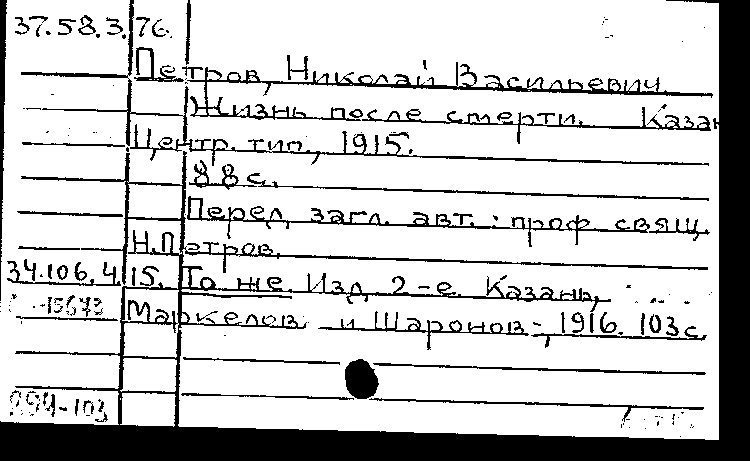 37.58.3.76.
Петров, Николай Васильевич.
Жизнь после смерти. Казан
Центр. тип., 1915.
88 с.
Перед загл. авт.: проф свящ.
Н.Петров.
34.106.4.15. То же. Изд 2-е. Казань,
-15673 Маркелов и Шаронов, 1916. 103 с.
894-103